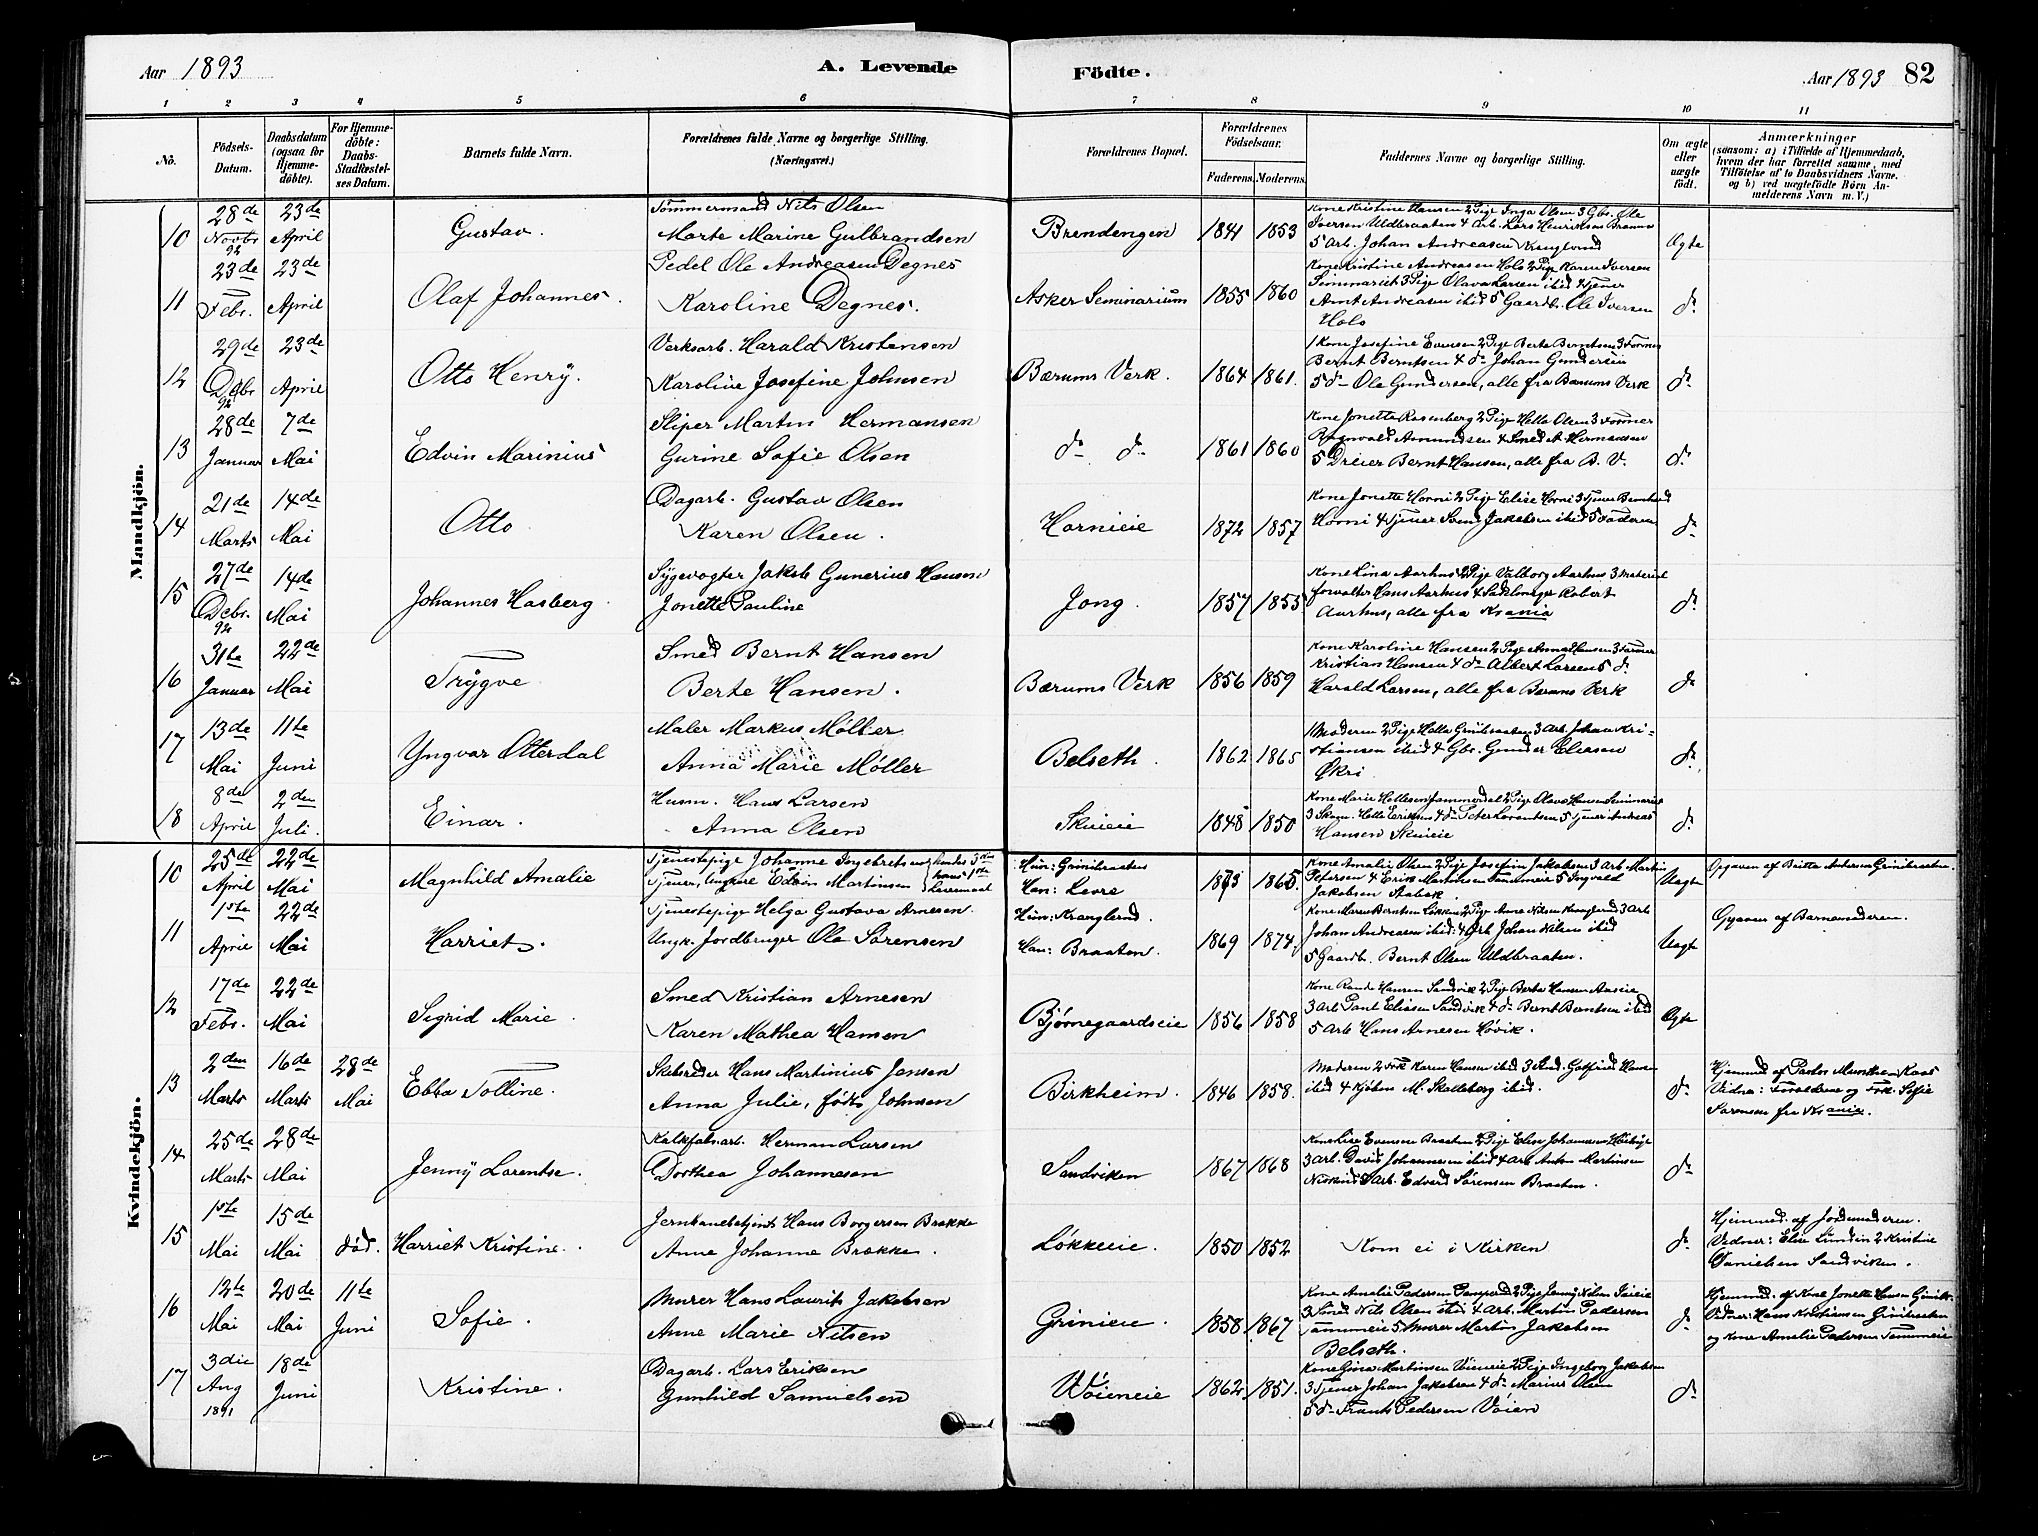 Aar 1893
A. Levende
Födte.
Aar 1893 82
1 2 3 4 5 6 7 8 9 10 11
No.
Födsels-Datum.
Daabsdatum (ogsaa for Hjemme-döbte).
For Hjemme-döbte: Daabs-Stadfæstel-ses Datum.
Barnets fulde Navn.
Forældrenes fulde Navne og borgerlige Stilling.
(Næringsvei.)
Forældrenes Bopæl.
Forældrenes Födselsaar.
Faderens. Moderens.
Faddernes Navne og borgerlige Stilling.
Om ægte eller uægte födt.
Anmærkninger
(saasom: a) i Tilfælde af Hjemmedaab, hvem der har forrettet samme, med Tilföielse af to Daabsvidners Navne. og b) ved uægtefödte Börn An-melderens Navn m. V.)
Mandkjön.
10 28de Novbr 92 23de April Gustav. Tömmermand Nils Olsen
Marte Marine Gulbrandsen Brendengen 1841 1853
Kone Kristine Hansen 2 Pige Inga Olsen 3 Gbr. Ole
Iversen Uldbraaten 4 Arb. Lars Henriksen
5 Arb. Johan Andreasen Kranglund Ægte
11 23de Febr. 23de April Olaf Johannes. Pedel Ole Andreasen Degnes
Karoline Degnes. Asker Seminarium 1855 1860
Kone Kristine Andreasen Hols 2 Pige Karen Iversen
Seminariet 3 Pige Olava Larsen ibid 4 Tjener
Amt Andreasen ibid 5 Gaardb. Ole Iversen
Hols do
12 29de Dcbr 92 23de April Otto Henry. Verksarb. Harald Kristensen
Karoline Josefine Johnsen Bærums Verk. 1864 1861.
1 Kone Josefine Evensen 2 Pige Berte Berntsen 3 Former
Bernt Berntsen 4 do Johan Gundersen
5 do Ole Gundersen, alle fra Bærums Verk do
13 28de Januar 7de Mai Edvin Marinius Sliper Martin Hermansen
Gurine Sofie Olsen do do 1861 1860
Kone Jonette Rosenberg 2 Pige Helle Olsen 3 Former
Ragnvald Amundsen 4 Smed A. Hermansen
5 Dreier Bernt Hansen, alle fra B. V. do
14 21de Marts 14de Mai Otto Dagarb. Gustav Olsen
Karen Olsen. Hornieie 1872 1857
Kone Jonette Horni 2 Pige Elise Horni 3 Tjener Bernhard
Horni 4 Tjener Sven Jakobsen ibid 5 Faderen do
15 27de Dcbr. 92 14de Mai Johannes Hasberg. Sygevogter Jakob Gunerius Hansen
Jonette Pauline Jong. 1857 1855
Kone Lina Aarhus 2 Pige Valborg Aarhus 3 Material
forvalter Hans Aarhus 4 Robert
Aarhus, alle fra Krania do
16 31te Januar 22de Mai Trygve Smed Bernt Hansen
Berte Hansen. Bærums Verk 1856 1859
Kone Karoline Hansen 2 Pige Anna Hansen 3 Former
Kristian Hansen 4 do Albert Larsen 5 do
Harald Larsen, alle fra Bærums Verk do
17 13de Mai 11te Juni Yngvar Otterdal Maler Markus Møller
Anna Marie Møller Belseth. 1862 1865
1 Moderen 2 Pige Helle Grinibraaten 3 Arb. Johan Kri-
stiansen ibid 4 Gbr. Gunder Eliasen
Økri do
18 8de April 2den Juli. Einar. Husm. Hans Larsen
Anna Olsen Skuieie 1848 1850
Kone Marie Hellesen Jammerdal 2 Pige Olava Hansen Seminariet
3 Skom. Helle Eriksen 4 do Peter Lorentsen 5 Tjener Andreas
Hansen Skuieie do
Kvindekjön.
10 25de April 22de Mai Magnhild Amalie Tjenestepige Johanne Ingebretsen hendes 3die
Tjener, Ungkarl Edvin Martinsen hans 1ste Leiermaal
Hun: Grinibraaten
Han: Levre 1873 1865.
Kone Amalie Olsen 2 Pige Josefine Jakobsen 3 Arb. Martin
Petersen 4 Erik Martinsen Tandmeie 5 Ingvald
Jakobsen Stabæk. Uægte Opgaven af Britta Andersen Grinibraaten
11 1ste April 22de Mai Harriet. Tjenestepige Helga Gustava Arnesen.
Ungk. Jordbruger Ole Sørensen
Hun: Kranglund.
Han: Braaten. 1869 1874,
Kone Maren Berntsen Løkken 2 Pige Anne Nilsen Kranglund 3 Arb
Johan Andreasen ibid: 4 Arb Johan Nilsen ibid
5 Gaardb. Bernt Olsen Uldbraaten. Uægt Opgaven af Barnemoderen.
12 17de Febr. 22de Mai Sigrid Marie. Smed Kristian Arnesen
Karen Mathea Hansen Bjørnegaardseie 1856 1858
Kone Hansen Sandvik 2 Pige Berta Hansen
3 Arb Paul Eliasen Sandvik 4 do Bernt Berntsen ibid
5 Arb Hans Arnesen Høvik. Ægte
13 2den Marts 16de Marts 28de Mai Ebba Tolline. Skibsreder Hans Martinius Jensen
Anna Julie, født Johnsen Birkheim. 1846 1858.
Moderen 2 Frk Karen Hansen ibid 3 Stud. Gotfried Hansen
ibid 4 Kjøbm M. Skolleborg ibid. do
Hjemmed af Pastor Munthe Kaas
Vidner: Forældrene og Frk. Sofie
Sørensen fra Krania.
14 25de Marts 28de Mai Jenny Lorentse. Kalkfabarb. Herman Larsen
Dorthea Johannesen Sandviken 1867 1868
Kone Lise Evensen Braaten 2 Pige Elise Johannesen
3 Arb. David Johannesen ibid 4 Arb Anton Martinsen
5 Arb. Edvard Sørensen Braaten. do
15 1ste Mai 15de Mai død. Harriet Kristine. Jernbanebetjent Hans Borgersen Brække
Anne Johanne Brække. Løkkeeie. 1850 1852 Kom ei i Kirken do
Hjemmed. af Jordmoderen.
Vidner: Elise Lundin 2 Kristine
Danielsen Sandviken.
16 12te Mai 20de Mai 11te Juni Sofie. Murer Hans Laurits Jakobsen
Anne Marie Nilsen Grinieie. 1858. 1867.
Kone Amalie Pedersen 2 Pige Jenny Nilsen
3 Smed Nils Olsen ibid 4 Arb. Martin Pedersen
5 Murer Martin Jakobsen
Belseth. do
Hjemmed. af Kone Jonette Hansen
Vidner: Hans Kristiansen Grinibraaten
og Kone Amelie Pedersen
17 3die Aug 1891 18de Juni Kristine. Dagarb. Lars Eriksen
Gunhild Samuelsen Vøieneie 1862 1851.
Kone Gina Martinsen Vøieneie 2 Pige Ingeborg Jakobsen
3 Tjener Johan Jakobsen 4 do Marius Olsen
5 do Frants Pedersen Vøien do